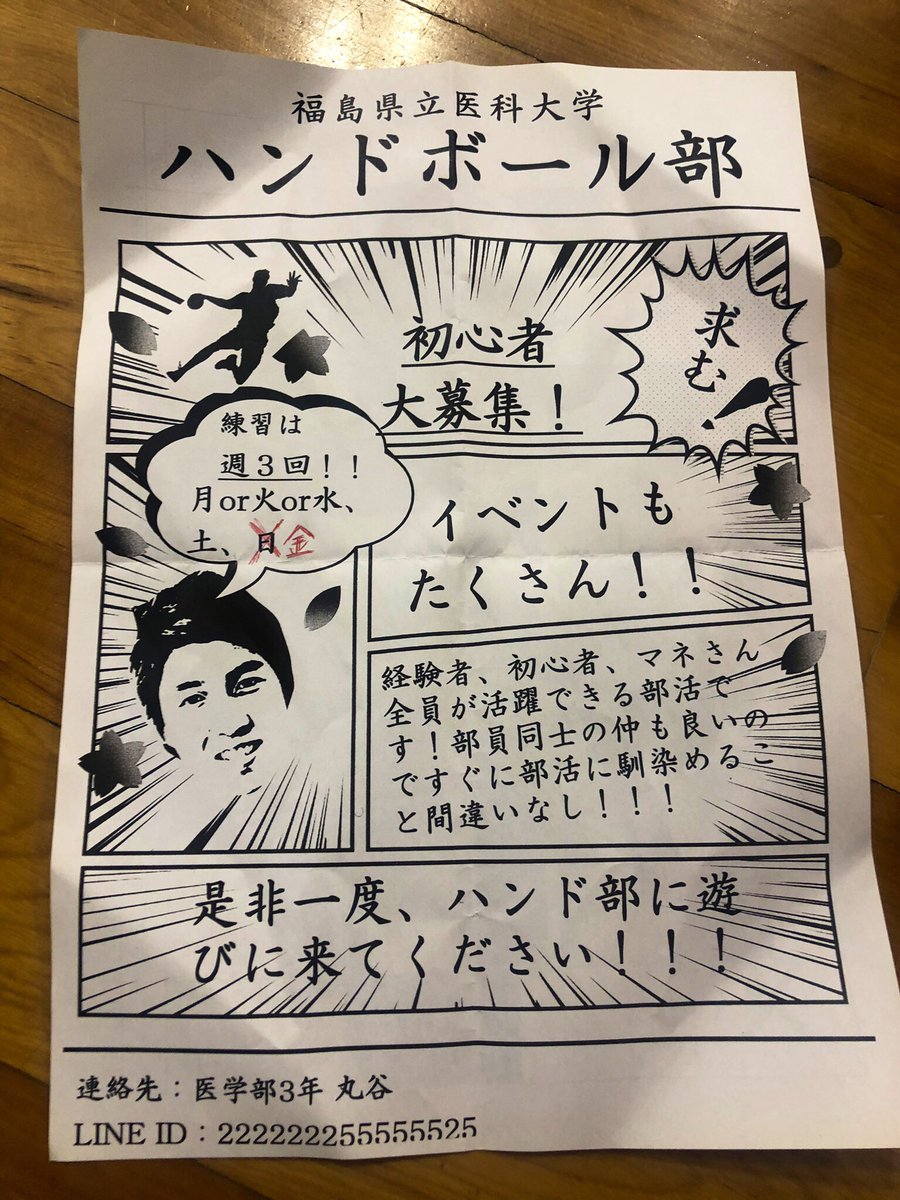 福島県立医科大学
ハンドボール部
初心者
大募集！
求む！
練習は
週３回！！
月or火or水、
土、日金
イベントも
たくさん！！
経験者、初心者、マネさん
全員が活躍できる部活で
す！部員同士の仲も良いの
ですぐに部活に馴染めるこ
と間違いなし！！！
是非一度、ハンド部に遊
びに来てください！！！
連絡先：医学部3年 丸谷
LINE ID：222222255555525